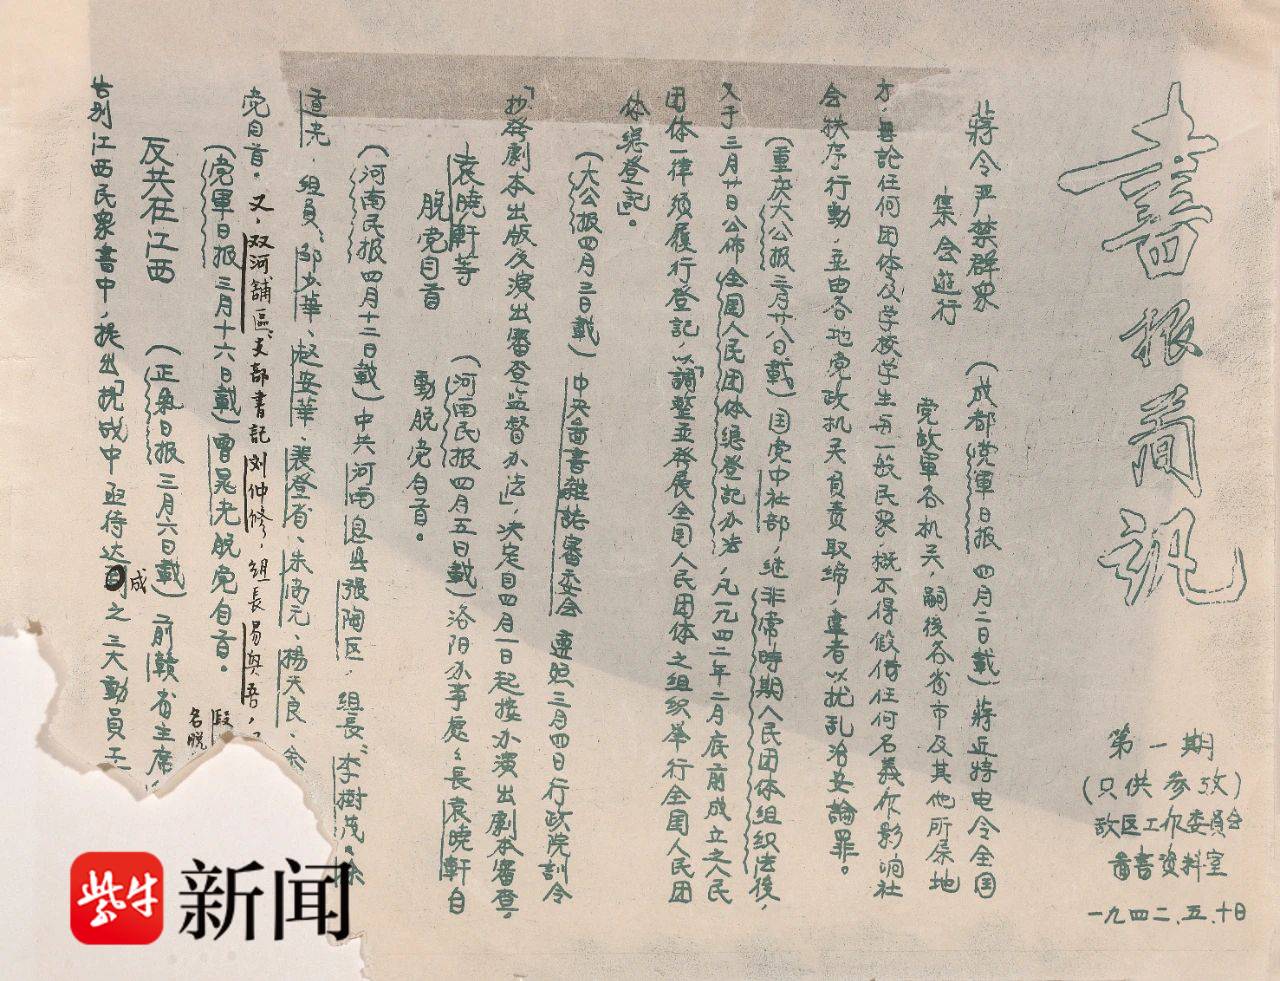 書报简讯
第一期
(只供参攷)
敌区工作委員会
圖書資料室
一九四二、五、十日
蔣令严禁群众
集会遊行
(成都党軍日报四月二日載)蔣近特电令全国
党政軍各机关,嗣後各省市及其他所屎地
方,無論任何团体及学校学生与一般民众,概不得假借任何名義作影响社
会秩序行動,並由各地党政机关負責取締,違者以扰乱治安論罪。
(重庆大公报三月廿八日載)国党中社部,继非常時期人民团体组织法後,
又于三月廿日公佈全国人民团体總登記办法,凡一九四二年二月底前成立之人民
团体一律须履行登記,以「調整並發展全国人民团体之组织举行全国人民团
体總登記」。
(大公报四月三日載)中央圖書雜誌審委会遵照三月四日行政院訓令
「抄發劇本出版及演出審查監督办法」,决定自四月一日起接办演出劇本審查。
袁曉軒等
脱党自首
(河南民报四月五日載)洛阳办事處处長袁曉軒自
動脱党自首。
(河南民报四月十二日載)中共河南息县張陶区,組長:李樹茂、徐
道光,組員:邹少華、赵安華、裴登省、朱高元、楊天良、余
党自首。又,双河舖區,支部書記刘仲修,組長易與吾,
段
名脱
(党軍日报三月十六日載)曹晃光脱党自首。
反共在江西
(正氣日报三月六日載)前赣省主席
告别江西民衆書中,提出「抗战中亟待达成之三大動員工
紫牛新闻